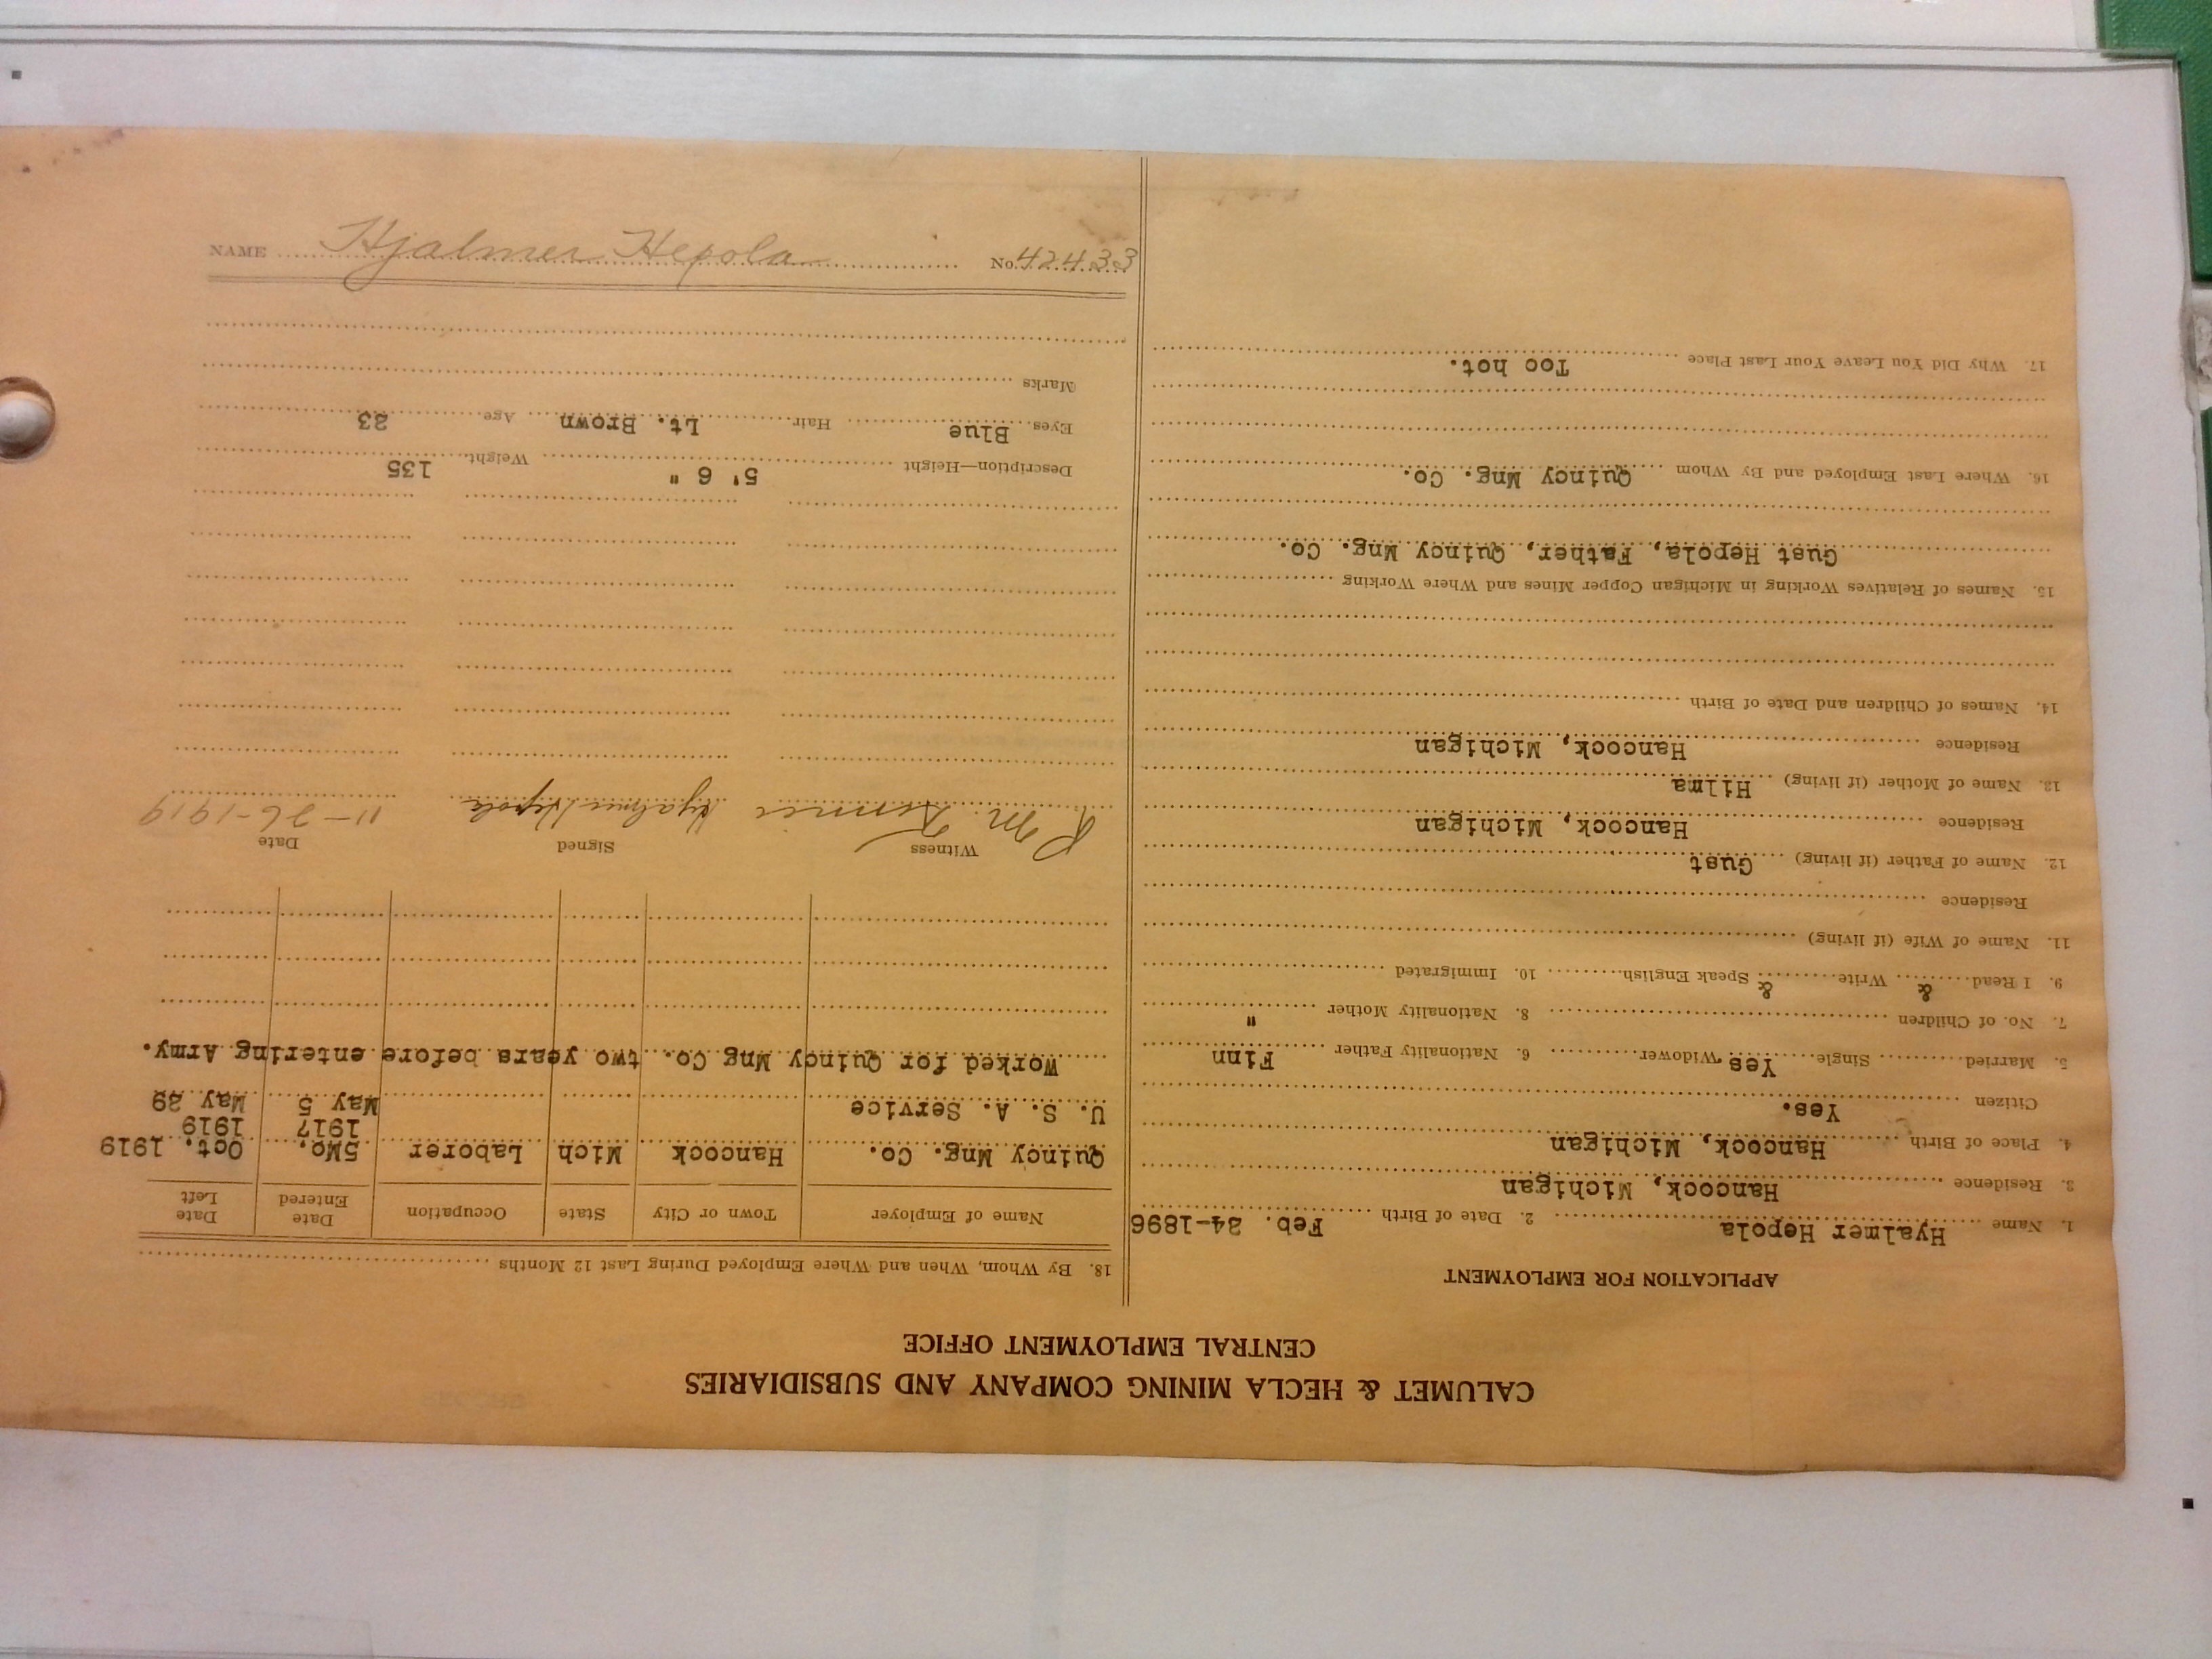 CALUMET & HECLA MINING COMPANY AND SUBSIDIARIES
CENTRAL EMPLOYMENT OFFICE
APPLICATION FOR EMPLOYMENT
1. Name Hyalmer Hepola 2. Date of Birth Feb. 24-1896
3. Residence Hancock, Michigan
4. Place of Birth Hancock, Michigan
Citizen Yes.
5. Married Single Yes Widower 6. Nationality Father Finn
7. No. of Children 8. Nationality Mother "
9. I Read & Write & Speak English 10. Immigrated
11. Name of Wife (if living)
Residence
12. Name of Father (if living) Gust
Residence Hancock, Michigan
13. Name of Mother (if living) Hilma
Residence Hancock, Michigan
14. Names of Children and Date of Birth
15. Names of Relatives Working in Michigan Copper Mines and Where Working
Gust Hepola, Father, Quincy Mng. Co.
16. Where Last Employed and By Whom Quincy Mng. Co.
17. Why Did You Leave Your Last Place Too hot.
18. By Whom, When and Where Employed During Last 12 Months
Name of Employer Town or City State Occupation Date Entered Date Left
Quincy Mng. Co. Hancock Mich Laborer 5Mo. Oct. 1919
1917 1919
U. S. A. Service May 5 May 29
Worked for Quincy Mng Co. two years before entering Army.
Witness Signed Date
M. Hyalmer Hepola 11-26-1919
Description—Height 5' 6 " Weight 135
Eyes Blue Hair Lt. Brown Age 23
Marks
NAME Hjalmer Hepola No. 42433